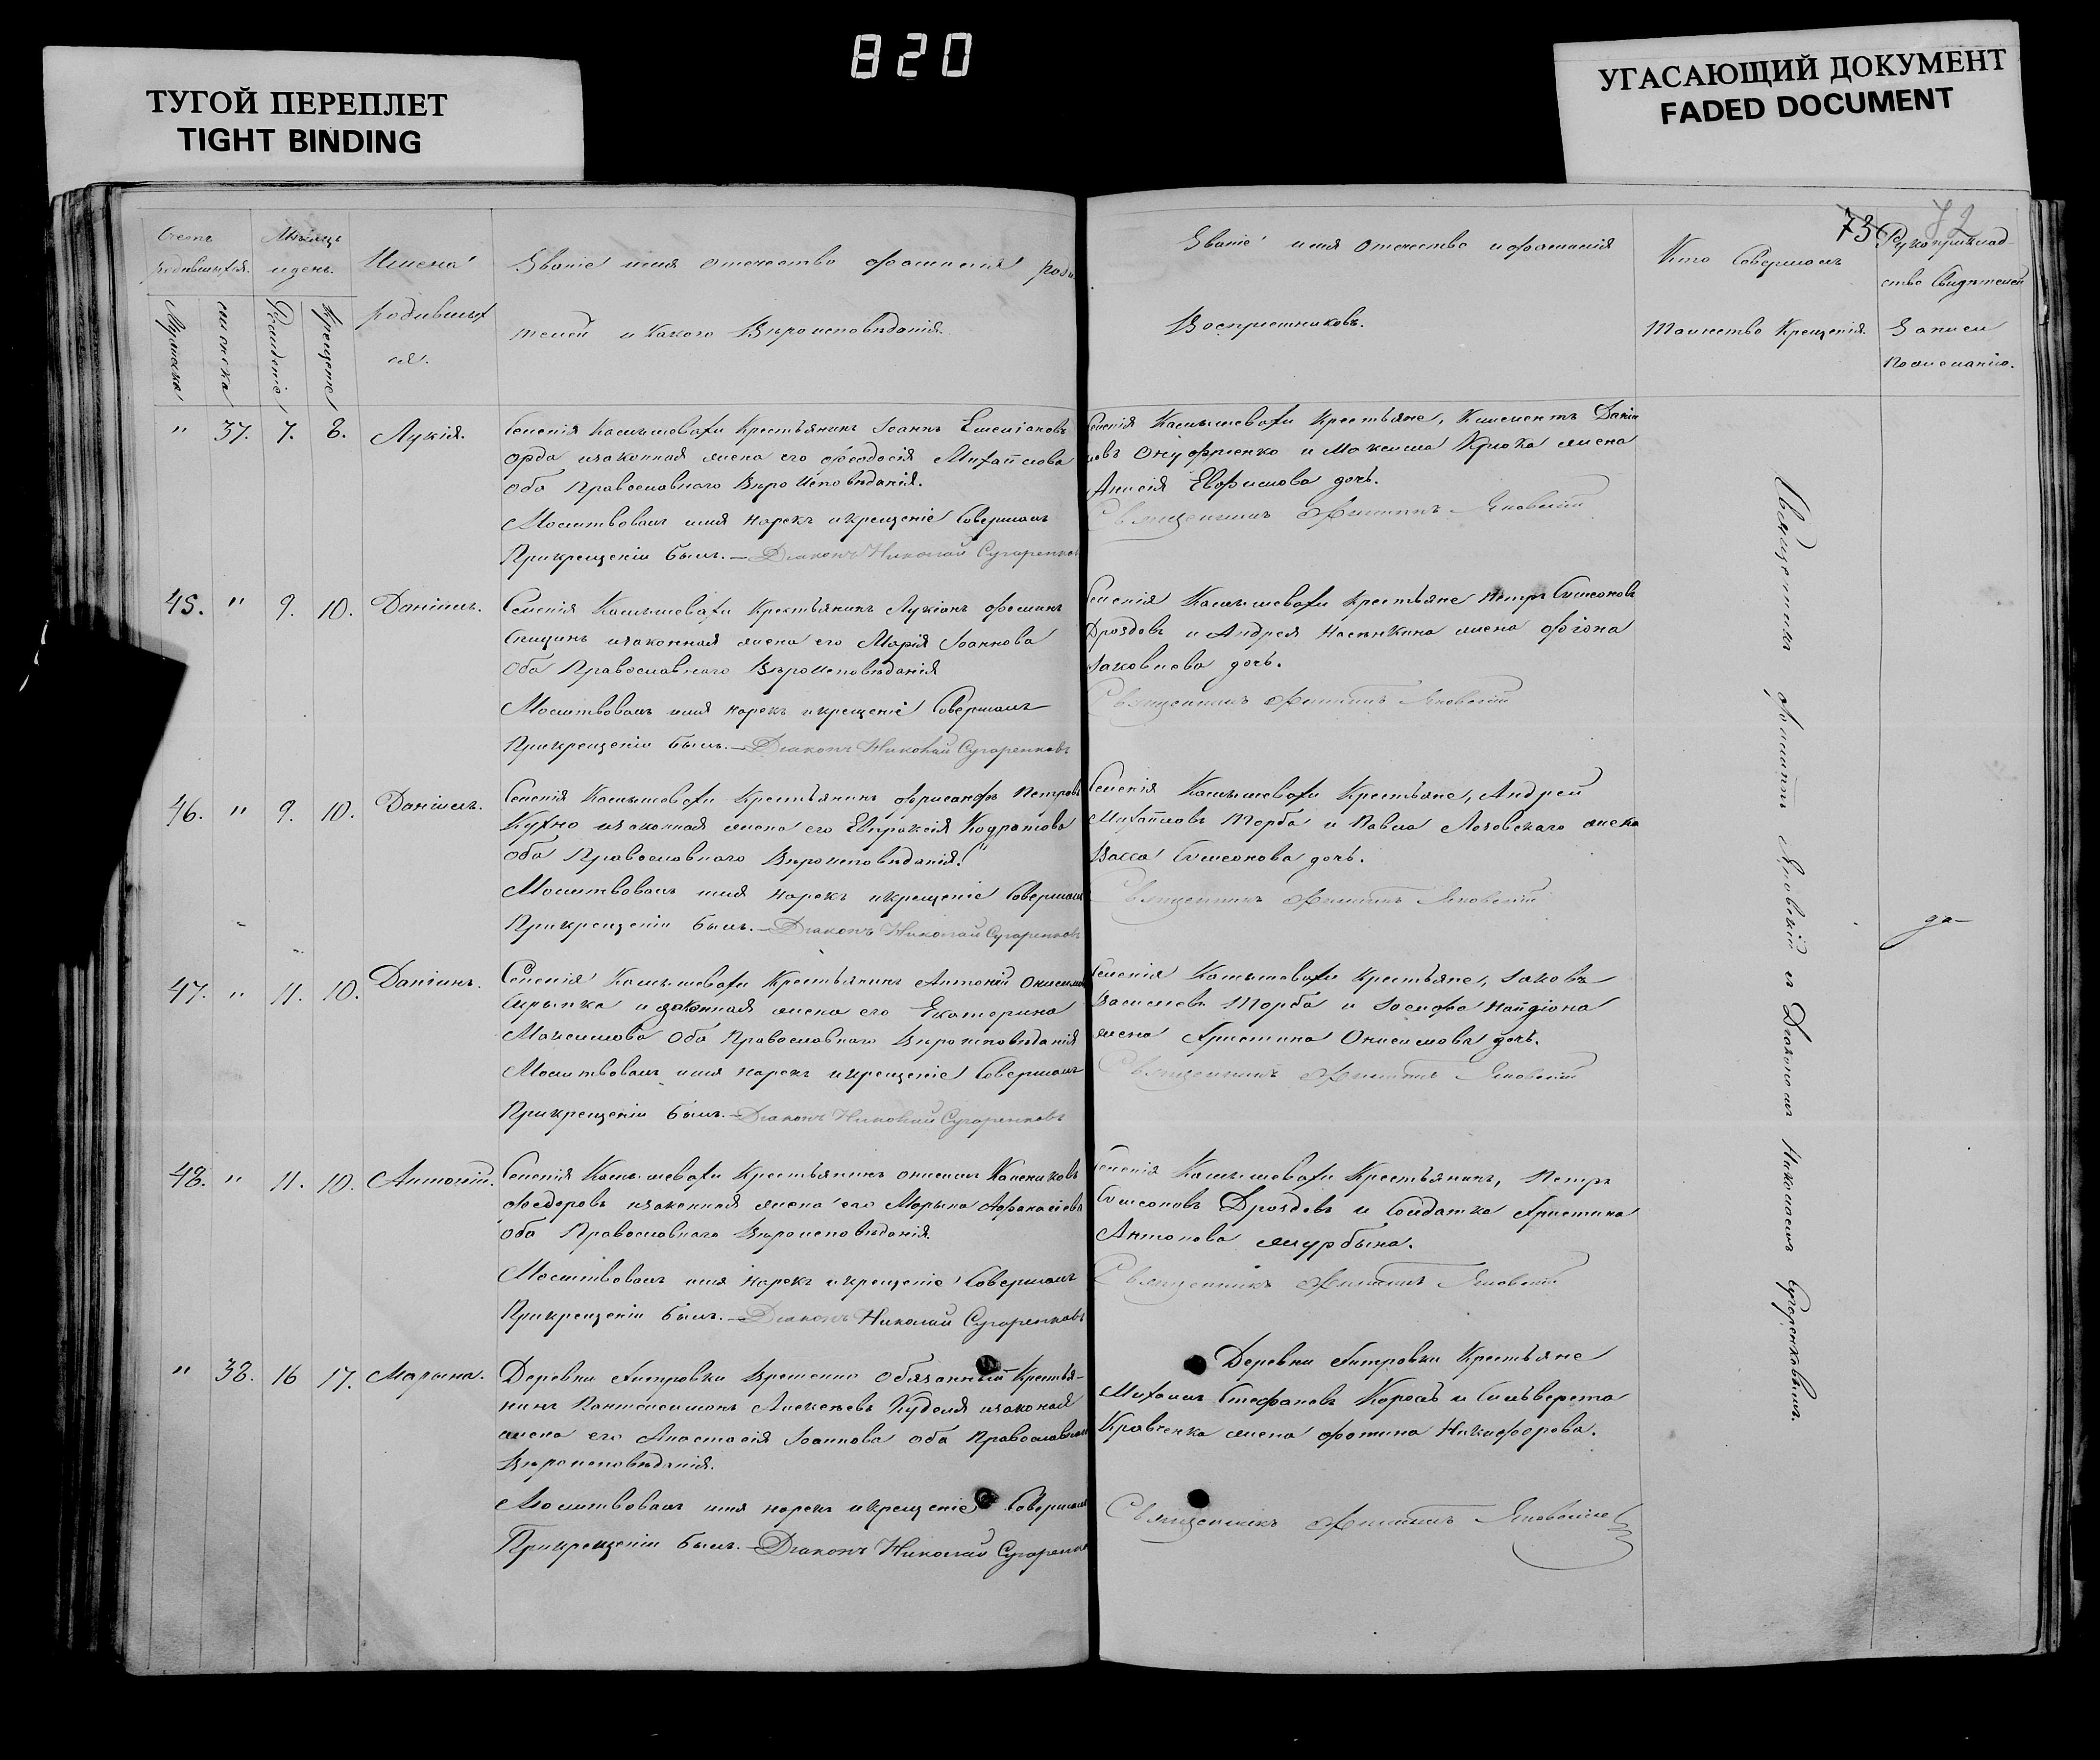 820
ТУГОЙ ПЕРЕПЛЕТ
TIGHT BINDING
УГАСАЮЩИЙ ДОКУМЕНТ
FADED DOCUMENT
73
72
Счетъ
родившихся.
Мѣсяцъ
и день.
Имена
родивших
ся.
Мужеска
женска
Рожденіе
Крещеніе
Званіе имя отечество фамилія роди
телей и какого Вѣроисповѣданія.
Званіе имя отечество и фамилія
Воспріемниковъ.
Кто Совершалъ
Таинство Крещенія.
Рукоприклад
ство Свидѣтелей
Записи
По желанію.
" 37. 7. 8. Лукія.
Селенія Камышевахи Крестьянинъ Іоаннъ Емеліановъ
Орда изаконная жена его Феодосія Михайлова
Оба Православнаго Вѣроисповѣданія.
Молитвовалъ имя нарекъ икрещеніе Совершалъ
Прикрещеніи былъ.— Діаконъ Николай Сугаренков
Селенія Камышевахи Крестьяне, Климентъ Даніи
ловъ Онуфріенко и Максима Крюка жена
Анисія Евфимова дочь.
Священникъ Филиппъ Яновскій
45. " 9. 10. Даніилъ.
Селенія Камышевахи Крестьянинъ Лукіанъ Фоминъ
Спицинъ изаконная жена его Марія Іоаннова
Оба Православнаго Вѣроисповѣданія
Молитвовалъ имя нарекъ икрещеніе Совершалъ
Прикрещеніи былъ.— Діаконъ Николай Сугаренковъ
Селенія Камышевахи Крестьяне Петръ Симеоновъ
Дроздовъ и Андрея жена
Іаковлева дочь.
Священникъ Филиппъ Яновскій
46. " 9. 10. Даніилъ.
Селенія Камышевахи Крестьянинъ Хрисанфъ Петровъ
Кухно изаконная жена его Евпраксія Кодратова
оба Православнаго Вѣроисповѣданія.
Молитвовалъ имя нарекъ икрещеніе Совершалъ
Прикрещеніи былъ.— Діаконъ Николай Сугаренковъ
Селенія Камышевахи Крестьяне, Андрей
Михайловъ Торба и Павла Лозовскаго жена
Васса Симеонова дочь.
Священникъ Филиппъ Яновскій
47. " 11. 10. Даніилъ.
Селенія Камышевахи Крестьянинъ Антоній
Скрыпка изаконная жена его Екатерина
Максимова Оба Православнаго Вѣроисповѣданія
Молитвовалъ имя нарекъ икрещеніе Совершалъ
Прикрещеніи былъ.— Діаконъ Николай Сугаренковъ
Селенія Камышевахи Крестьяне, Іаковъ
Васильевъ Торба и Іосифа Найдіона
жена Христина Онисимова дочь.
Священникъ Филиппъ Яновскій
48. " 11. 10. Антоній.
Селенія Камышевахи Крестьянинъ Онисимъ
Федоровъ изаконная жена его Марьна Афанасіева
оба Православнаго Вѣроисповѣданія.
Молитвовалъ имя нарекъ икрещеніе Совершалъ
Прикрещеніи былъ.— Діаконъ Николай Сугаренковъ
Селенія Камышевахи Крестьянинъ, Петръ
Симеоновъ Дроздовъ и Солдатка Христина
Антонова
Священникъ Филиппъ Яновскій
" 38. 16 17. Марьна.
Деревни Хитровки Временно Обязанный Крестья-
нинъ Пантелеимонъ Алексѣевъ Куделя изаконая
жена его Анастасія Іоаннова оба Православнаго
Вѣроисповѣданія.
Молитвовалъ имя нарекъ икрещеніе Совершалъ
Прикрещеніи былъ.— Діаконъ Николай Сугаренко
Деревни Хитровки Крестьяне
Михаилъ Стефановъ Карась и Сильверста
Кравченка жена Фотина Никифорова.
Священникъ Филиппъ Яновскій
Священникъ Филиппъ Яновскій и Діаконъ Николаемъ Сугаренковымъ.
да—